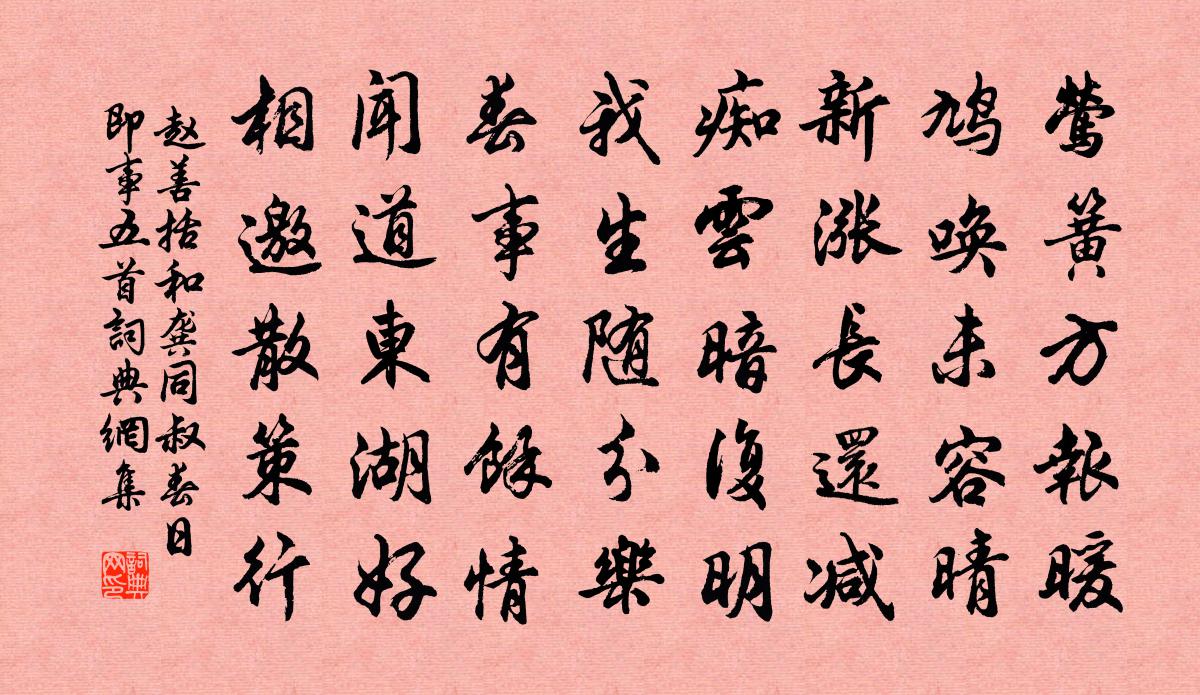 莺簧方報暖
鳩唤未容晴
新漲長還减
痴雲暗復明
我生随分樂
春事有餘情
闻道東湖好
相邀散策行
赵善括和龚同叔春日
即事五首詞典網集
詞典网印